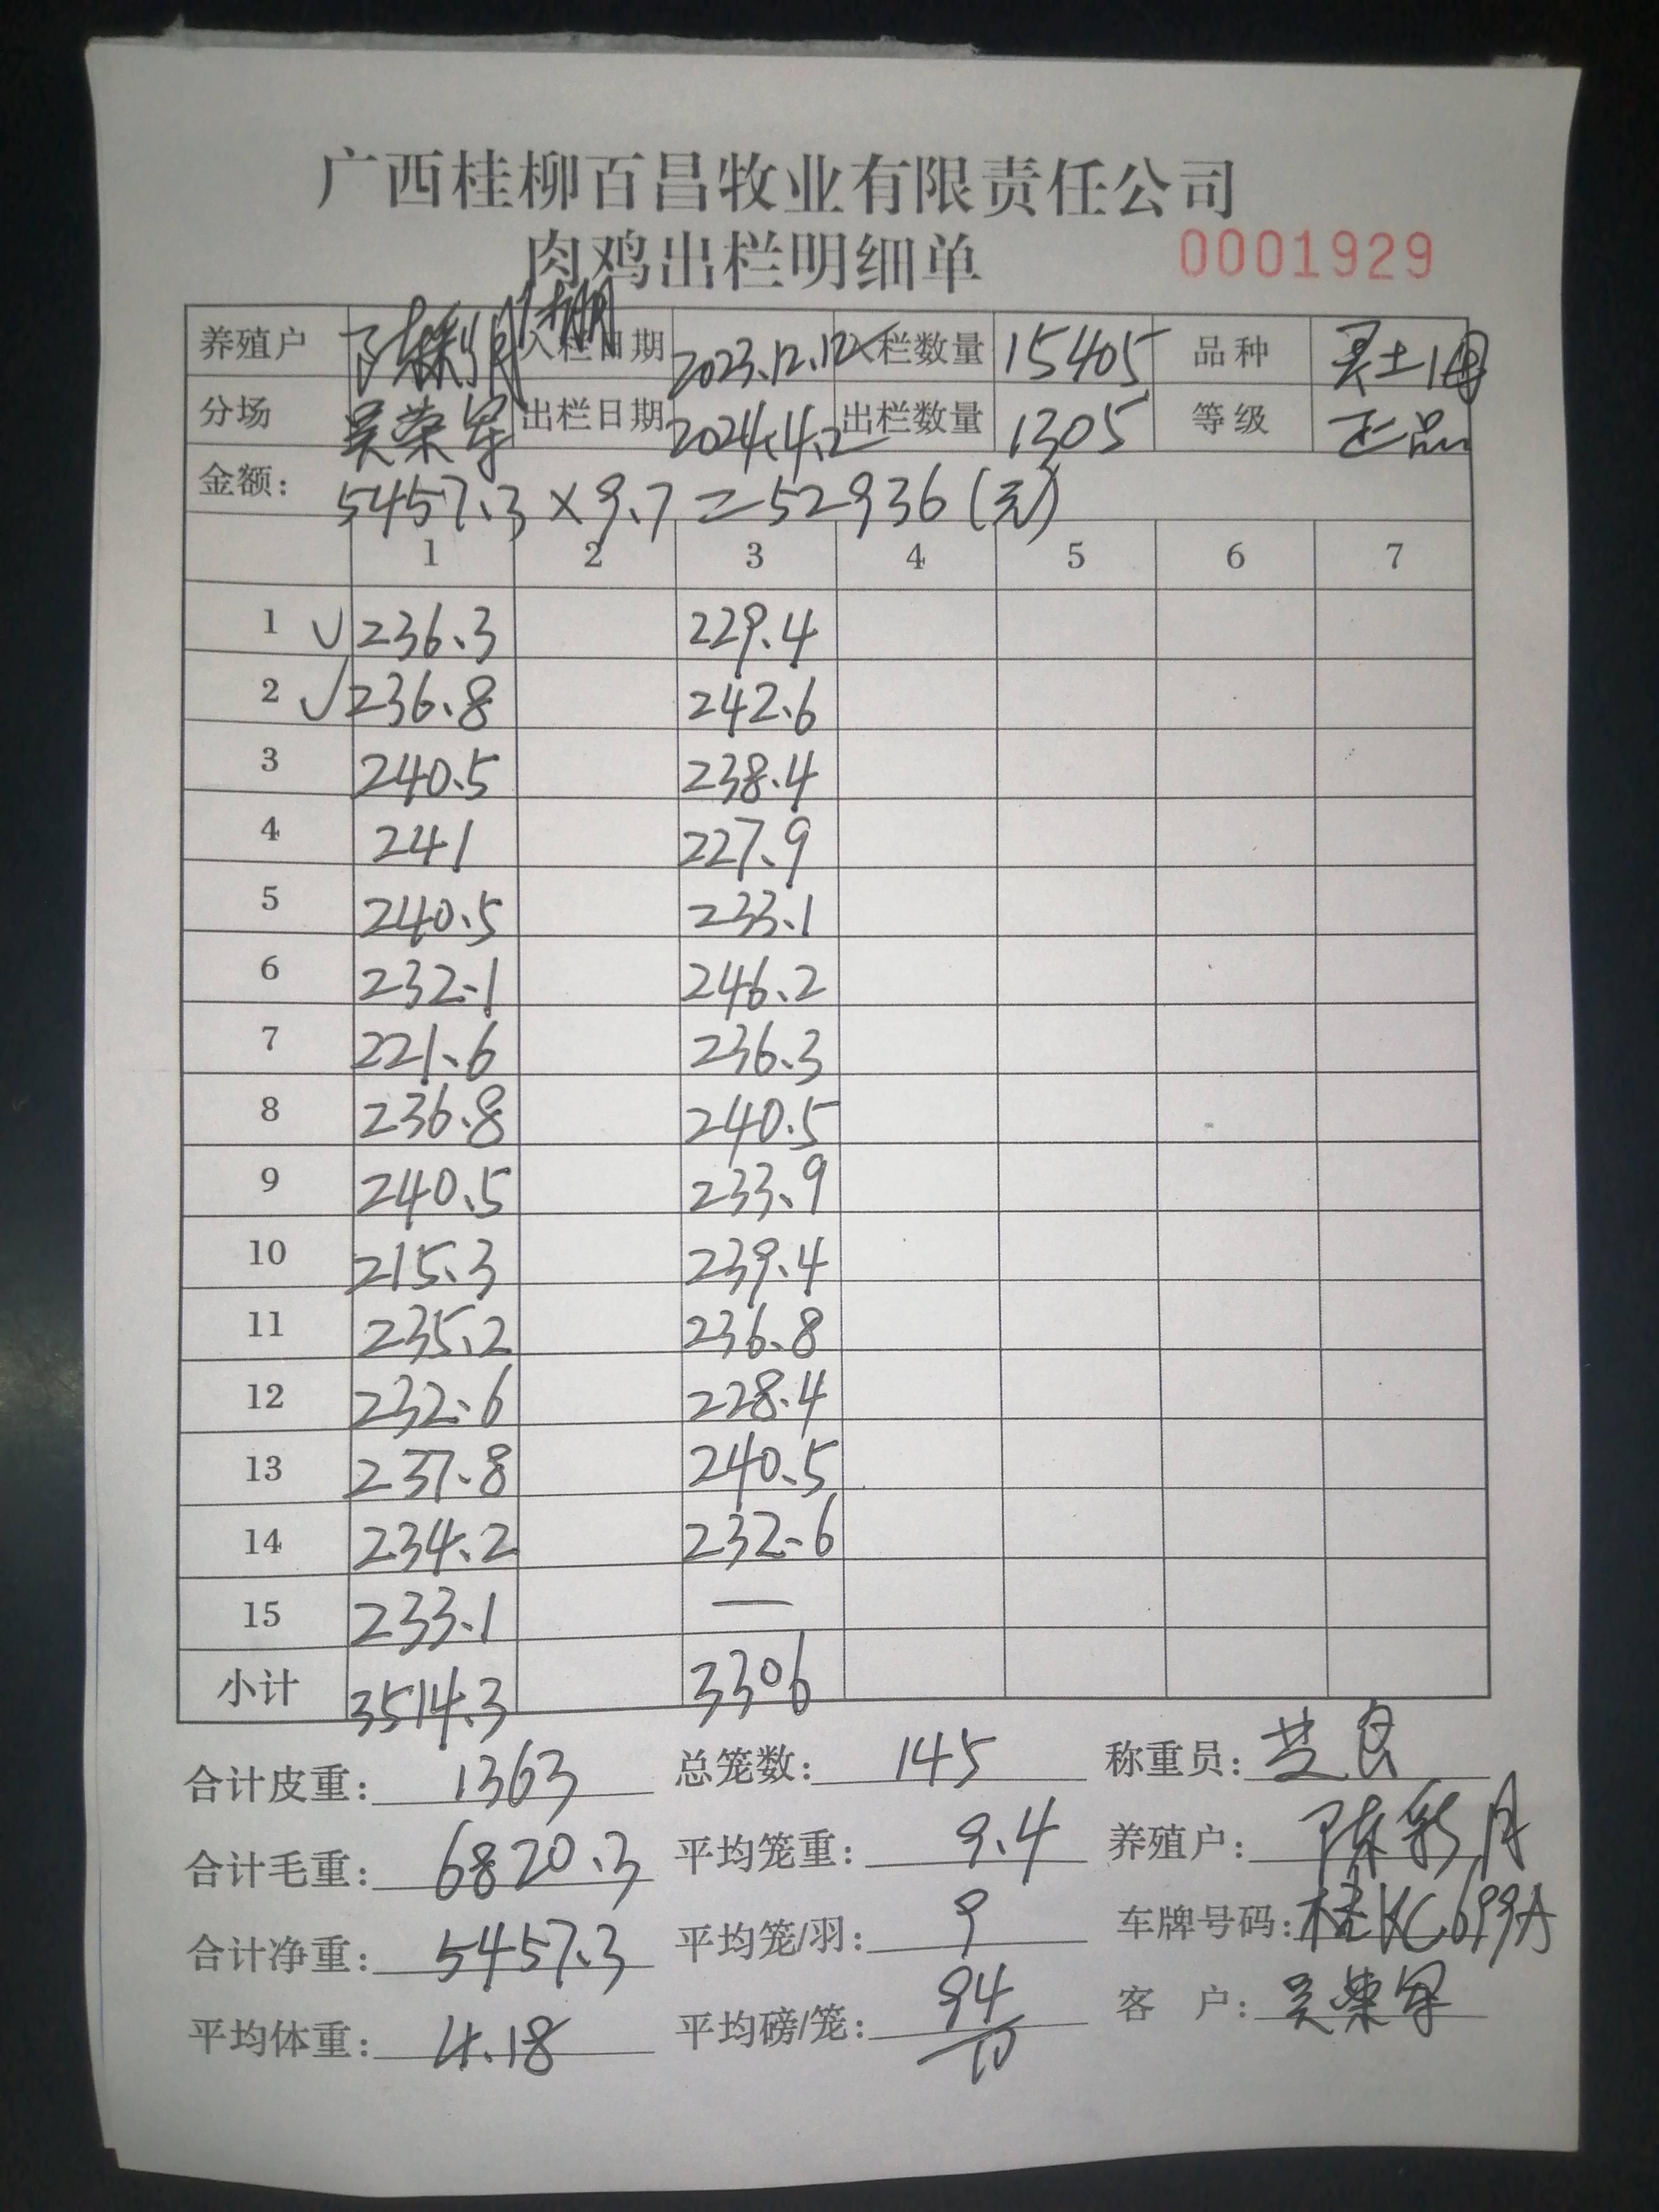 广西桂柳百昌牧业有限责任公司
肉鸡出栏明细单 0001929
养殖户 入栏日期 2023.12.12 入栏数量 15405 品种
分场 吴荣军 出栏日期 2024.4.2 出栏数量 1305 等级 正品
金额: 5457.3×9.7=52936(元)
1 2 3 4 5 6 7
1 √ 236.3 229.4
2 √ 236.8 242.6
3 240.5 238.4
4 241 227.9
5 240.5 233.1
6 232.1 246.2
7 221.6 236.3
8 236.8 240.5
9 240.5 233.9
10 215.3 239.4
11 235.2 236.8
12 232.6 228.4
13 237.8 240.5
14 234.2 232.6
15 233.1 —
小计 3514.3 3306
合计皮重: 1363 总笼数: 145 称重员:
合计毛重: 6820.3 平均笼重: 9.4 养殖户: 陈彩月
合计净重: 5457.3 平均笼/羽: 9 车牌号码: 桂KC699A
平均体重: 4.18 平均磅/笼: 94/10 客 户: 吴荣军